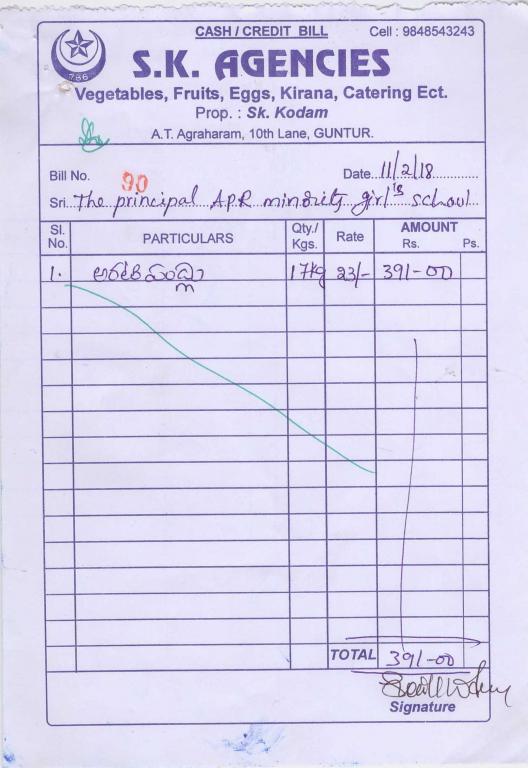 CASH / CREDIT BILL Cell : 9848543243
786
S.K. AGENCIES
Vegetables, Fruits, Eggs, Kirana, Catering Ect.
Prop. : Sk. Kodam
A.T. Agraharam, 10th Lane, GUNTUR.
Bill No. 90 Date 11/2/18
Sri. The principal APR minority girl's school
Sl. No. PARTICULARS Qty./ Kgs. Rate AMOUNT Rs. Ps.
1. అరటిపండ్లు 17kg 23/- 391-00
TOTAL 391-00
Signature